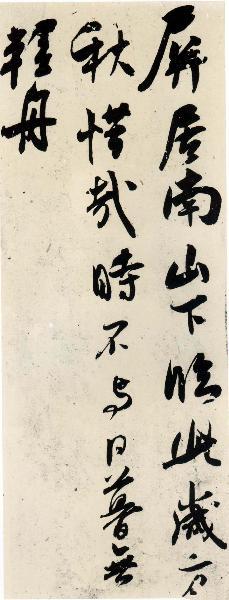 屏居南山下臨此歲方
秋惜哉時不与日暮無
輕舟